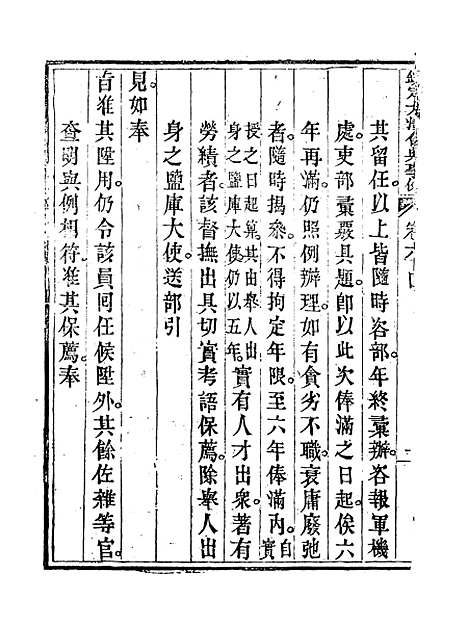 欽定大清會典事例 卷六
其留任以上皆隨時咨部年終彙辦咨報軍機
處吏部彙覈具題卽以此次俸滿之日起俟六
年再滿仍照例辦理如有貪劣不職衰庸廢弛
者隨時揭叅不得拘定年限至六年俸滿內自實
授之日起算其由舉人出身之鹽庫大使仍以五年實有人才出衆著有
勞績者該督撫出具切實考語保薦除舉人出
身之鹽庫大使送部引
見如奉
旨准其陞用仍令該員回任候陞外其餘佐雜等官
查明與例相符准其保薦奉